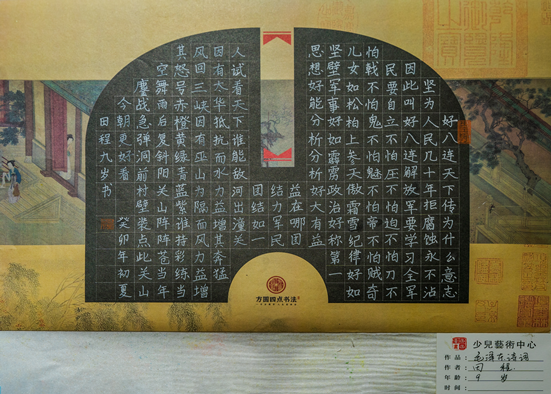 好八连天下传为什么意志
坚为人民几十年拒腐蚀永不沾
因此叫好八连解放军要学习全军
民要自立不怕压不怕迫不怕刀不
怕戟不怕鬼不怕魅不怕帝不怕贼奇
儿女如松柏上参天傲霜雪纪律好如
坚壁军事好如霹雳政治好称第一
思想好能分析分析好大有益
益在哪团
结力军民
团结如一
人试看天下谁能敌河出潼关
因有太华抵抗而水力益增其奔猛
风回三峡因有巫山为隔而风力益增
其怒号赤橙黄绿青蓝紫谁持彩练当
空舞雨后复斜阳关山阵阵苍当年
鏖战急弹洞前村壁装点此关山
今朝更好看 癸卯年初夏
田程九岁书
方圆四点书法
少兒藝術中心
作品：毛泽东诗词
作者：田程
年龄：9岁
时间：